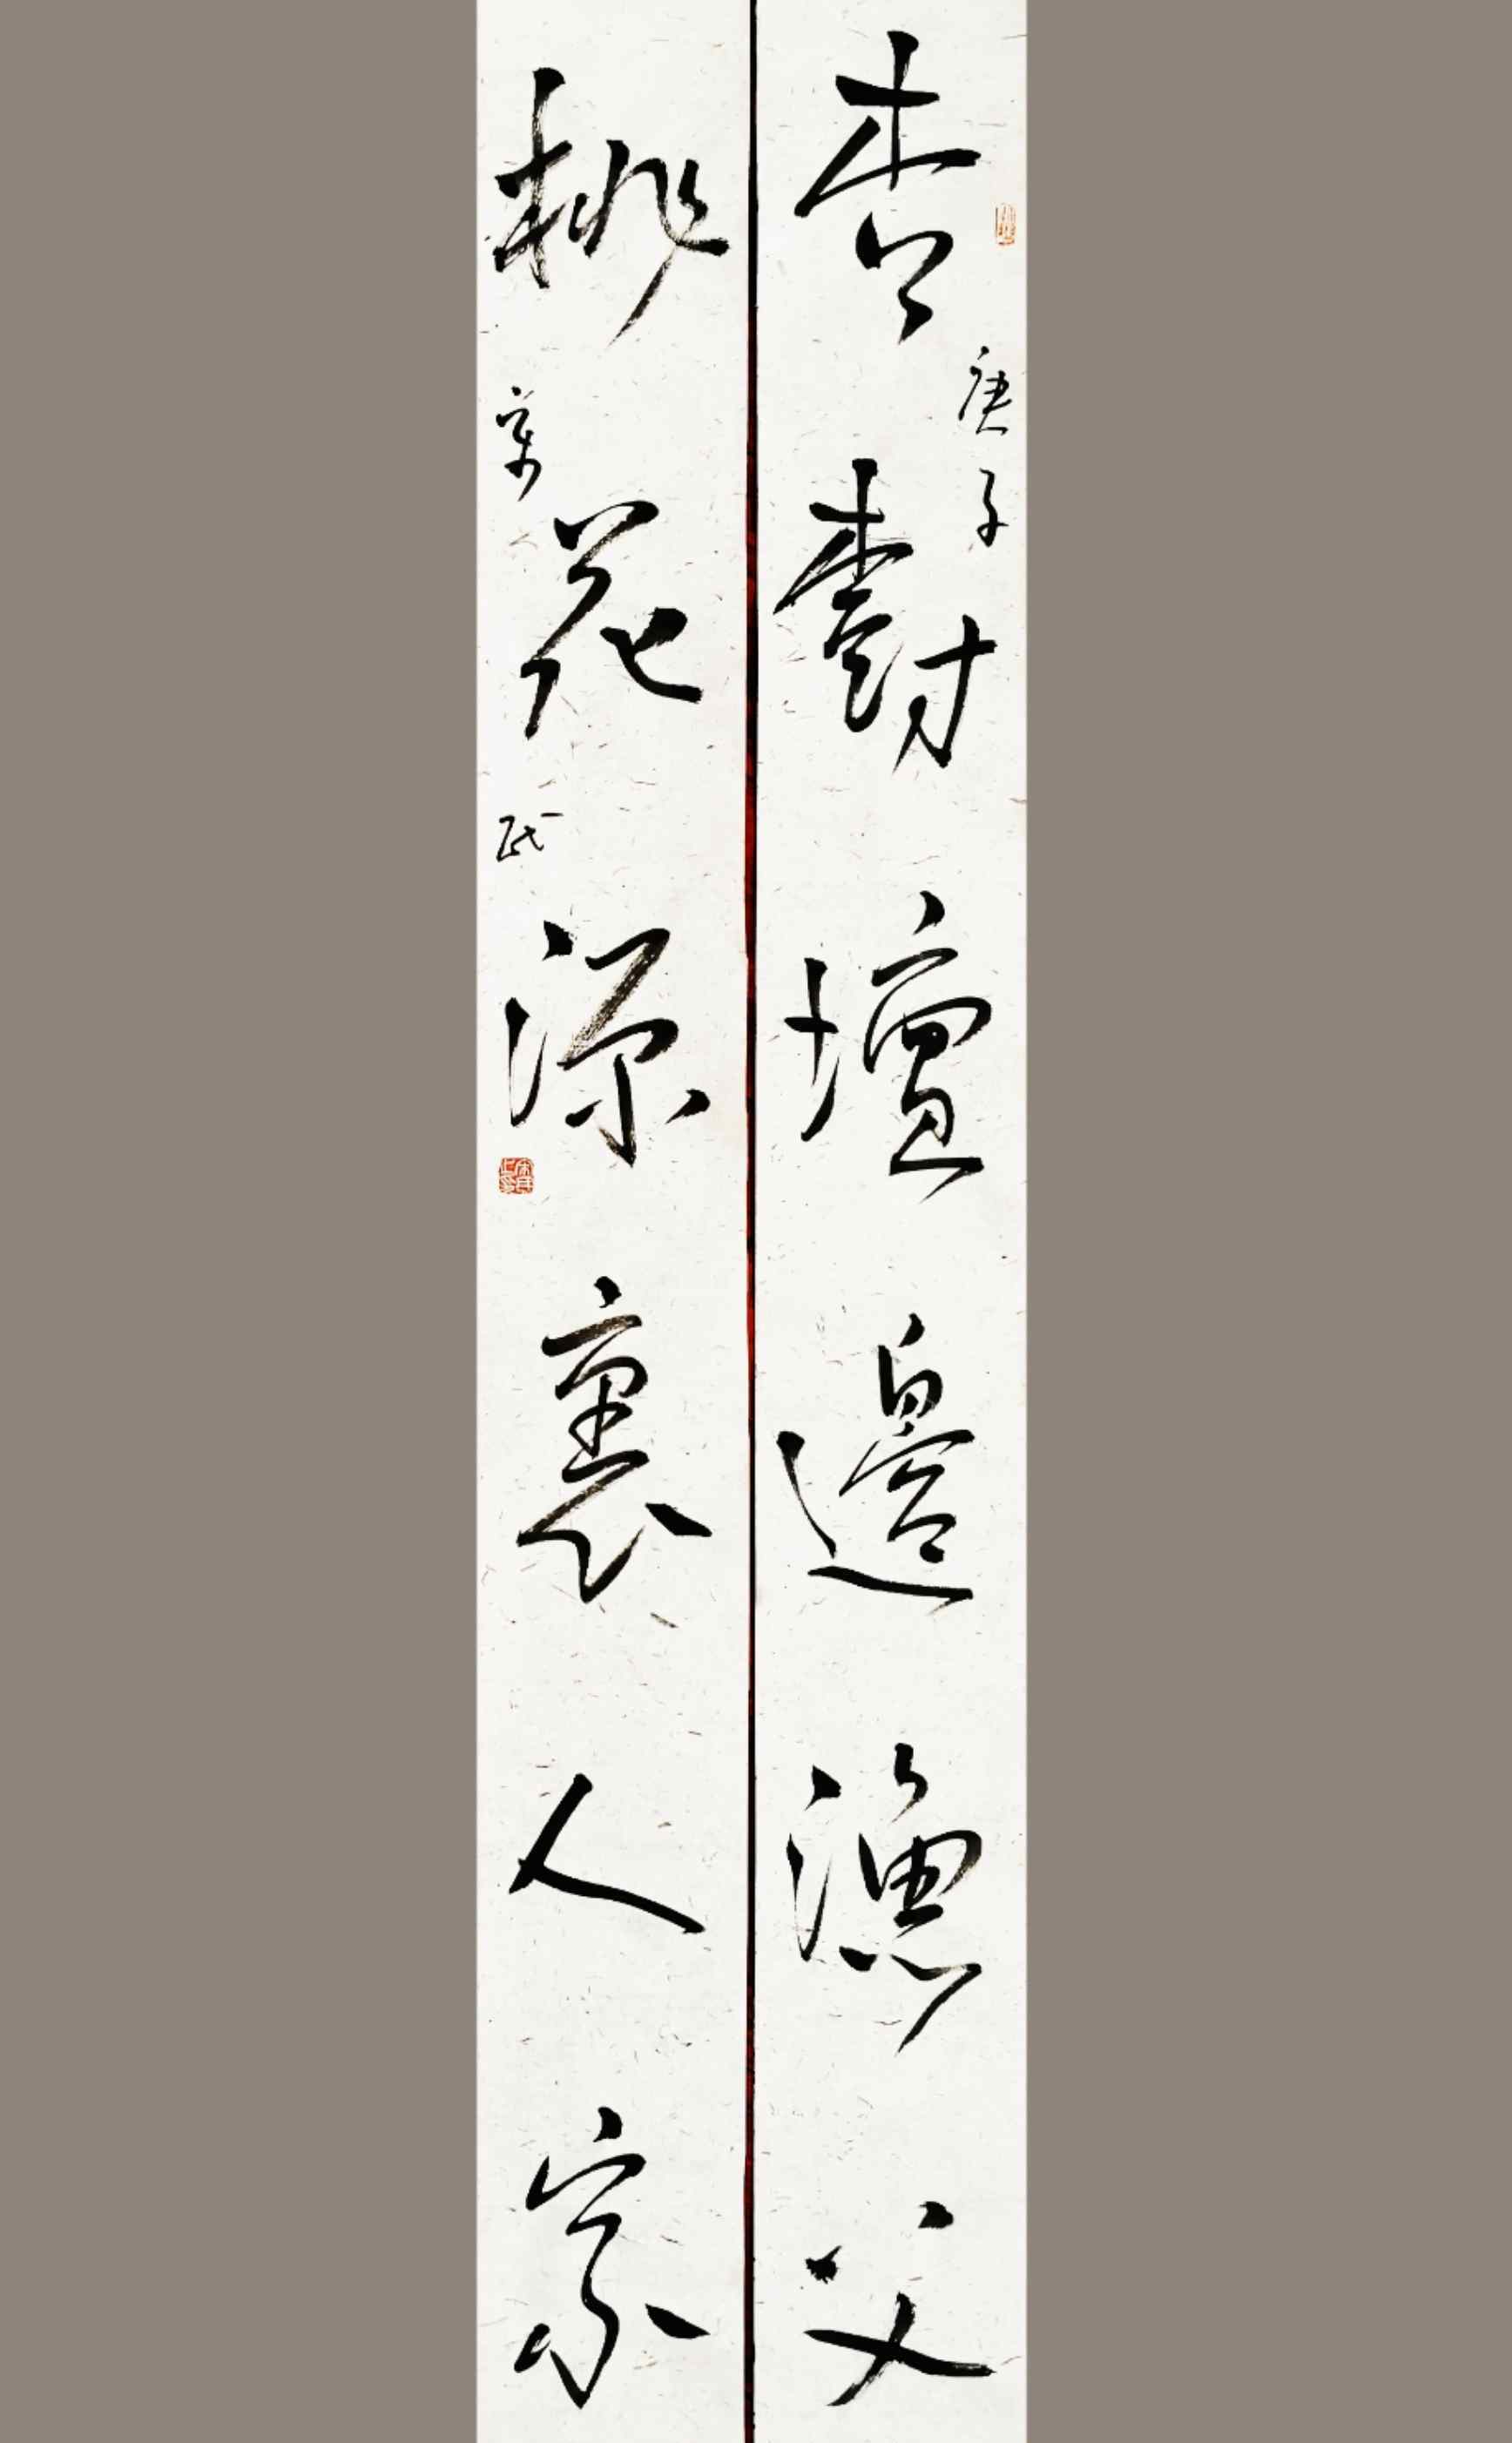 杏樹壇邊漁父
庚子
桃花源裏人家
宋民